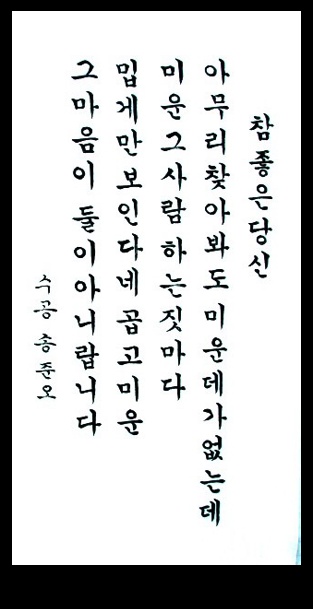 참좋은당신
아무리찾아봐도미운데가없는데
미운그사람하는짓마다
밉게만보인다네곱고미운
그마음이둘이아니랍니다
수공 송준오